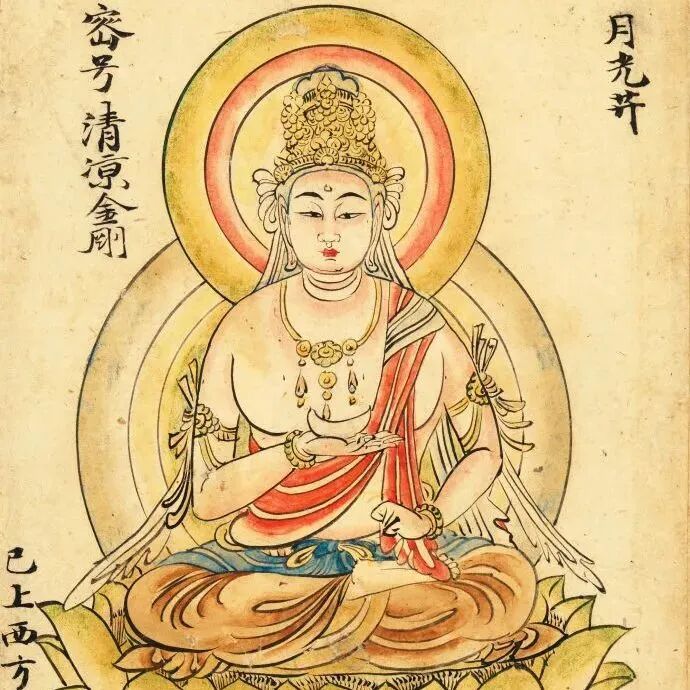 月光菩
密号清凉金剛
已上西方